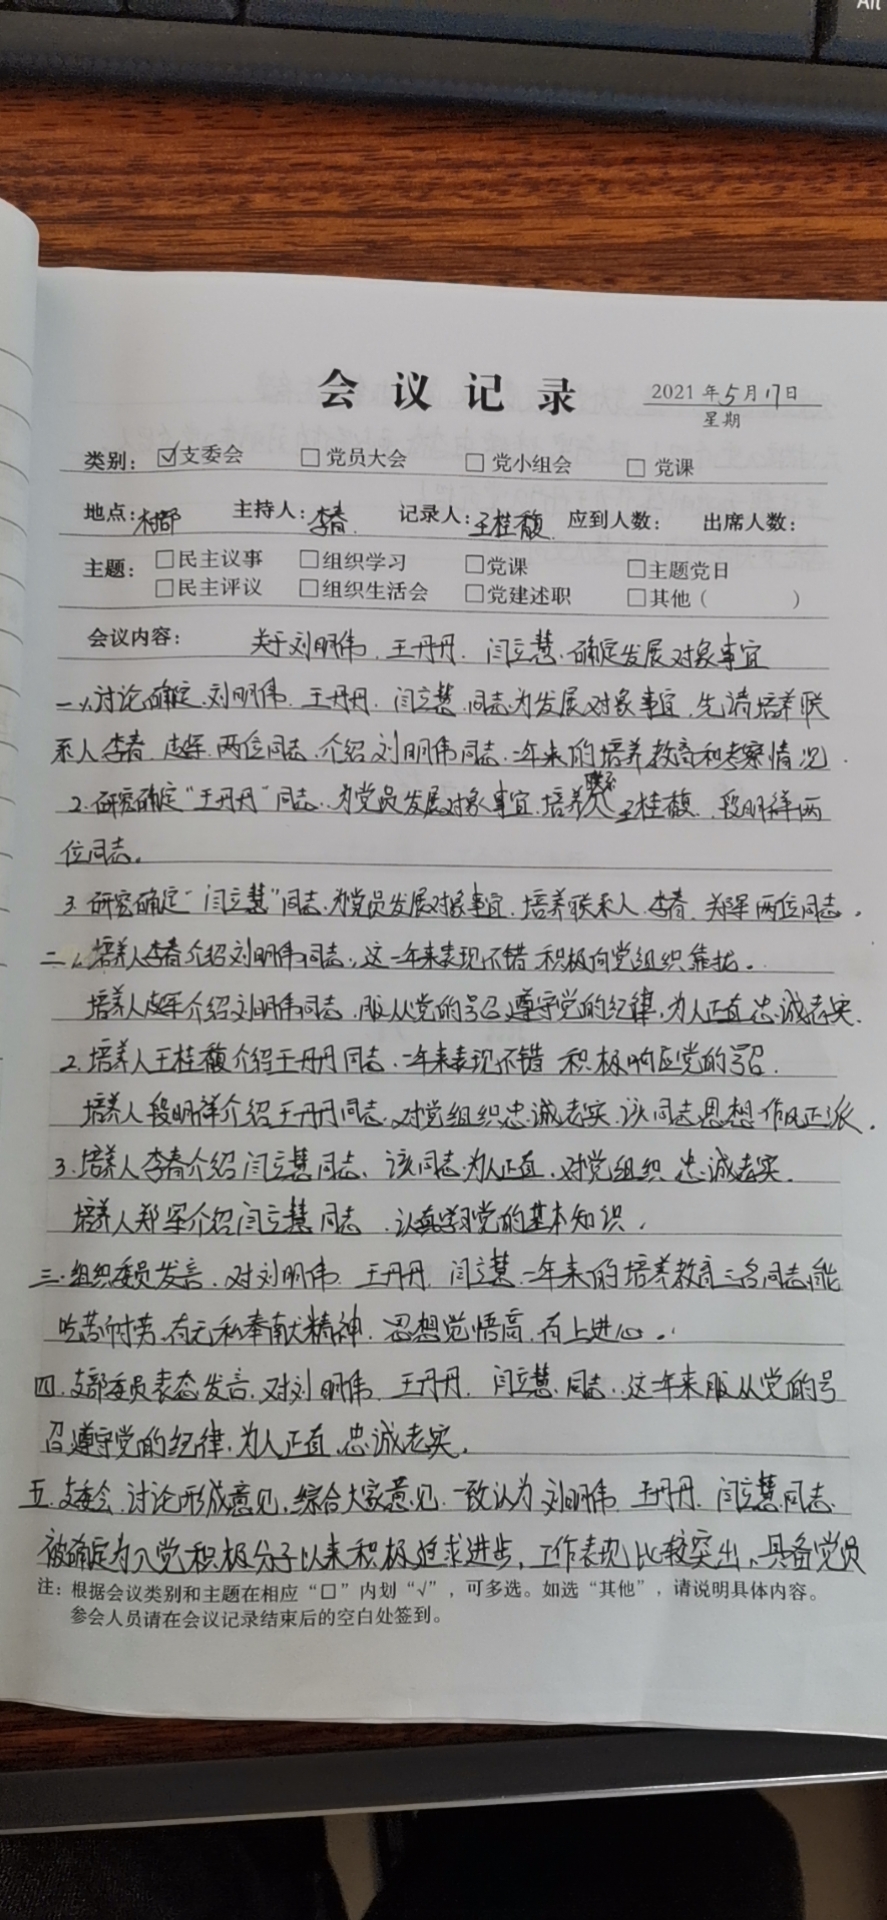 Alt
会议记录
2021年5月17日
星期
类别：☑支委会 □党员大会 □党小组会 □党课
地点：村部 主持人：李春 记录人：王桂馥 应到人数： 出席人数：
主题：□民主议事 □组织学习 □党课 □主题党日
□民主评议 □组织生活会 □党建述职 □其他（ ）
会议内容： 关于刘明伟、王丹丹、闫立慧、确定发展对象事宜
一、1、讨论确定、刘明伟、王丹丹、闫立慧、同志为发展对象事宜、先请培养联
系人李春、军、两位同志、介绍刘明伟同志、二年来的培养教育和考察情况.
2、研究确定“王丹丹”同志、为党员发展对象事宜、培养联系人王桂馥、段明祥两
位同志。
3、研究确定“闫立慧”同志、为党员发展对象事宜、培养联系人、李春、郑军两位同志.
二、1、培养人李春介绍刘明伟同志、这一年来表现不错 积极向党组织靠拢。
培养人军介绍刘明伟同志、服从党的号召遵守党的纪律、为人正直忠诚老实.
2、培养人王桂馥介绍王丹丹同志、二年来表现不错 积极响应党的号召.
培养人段明祥介绍王丹丹同志、对党组织忠诚老实、该同志思想作风正派.
3、培养人李春介绍闫立慧同志、该同志为人正直、对党组织忠诚老实.
培养人郑军介绍闫立慧同志、认真学习党的基本知识.
三、组织委员发言、对刘明伟、王丹丹、闫立慧、二年来的培养教育三名同志能
吃苦耐劳、有无私奉献精神、思想觉悟高、有上进心。
四、支部委员表态发言、对刘明伟、王丹丹、闫立慧、同志、这一年来服从党的号
召遵守党的纪律、为人正直、忠诚老实.
五、支委会、讨论形成意见、综合大家意见、一致认为刘明伟、王丹丹、闫立慧同志、
被确定为入党积极分子以来积极追求进步、工作表现比较突出、具备党员
注：根据会议类别和主题在相应“□”内划“√”，可多选。如选“其他”，请说明具体内容。
参会人员请在会议记录结束后的空白处签到。